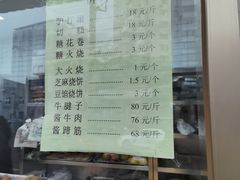 18 元/斤
切 糕 18 元/斤
糖 花 卷 3 元/个
糖 火 烧 3 元/个
大 火 烧 1 元/个
芝麻烧饼 1.5 元/个
豆馅烧饼 3 元/个
牛 腱 子 80 元/斤
酱 牛 肉 76 元/斤
酱 蹄 筋 68 元/斤